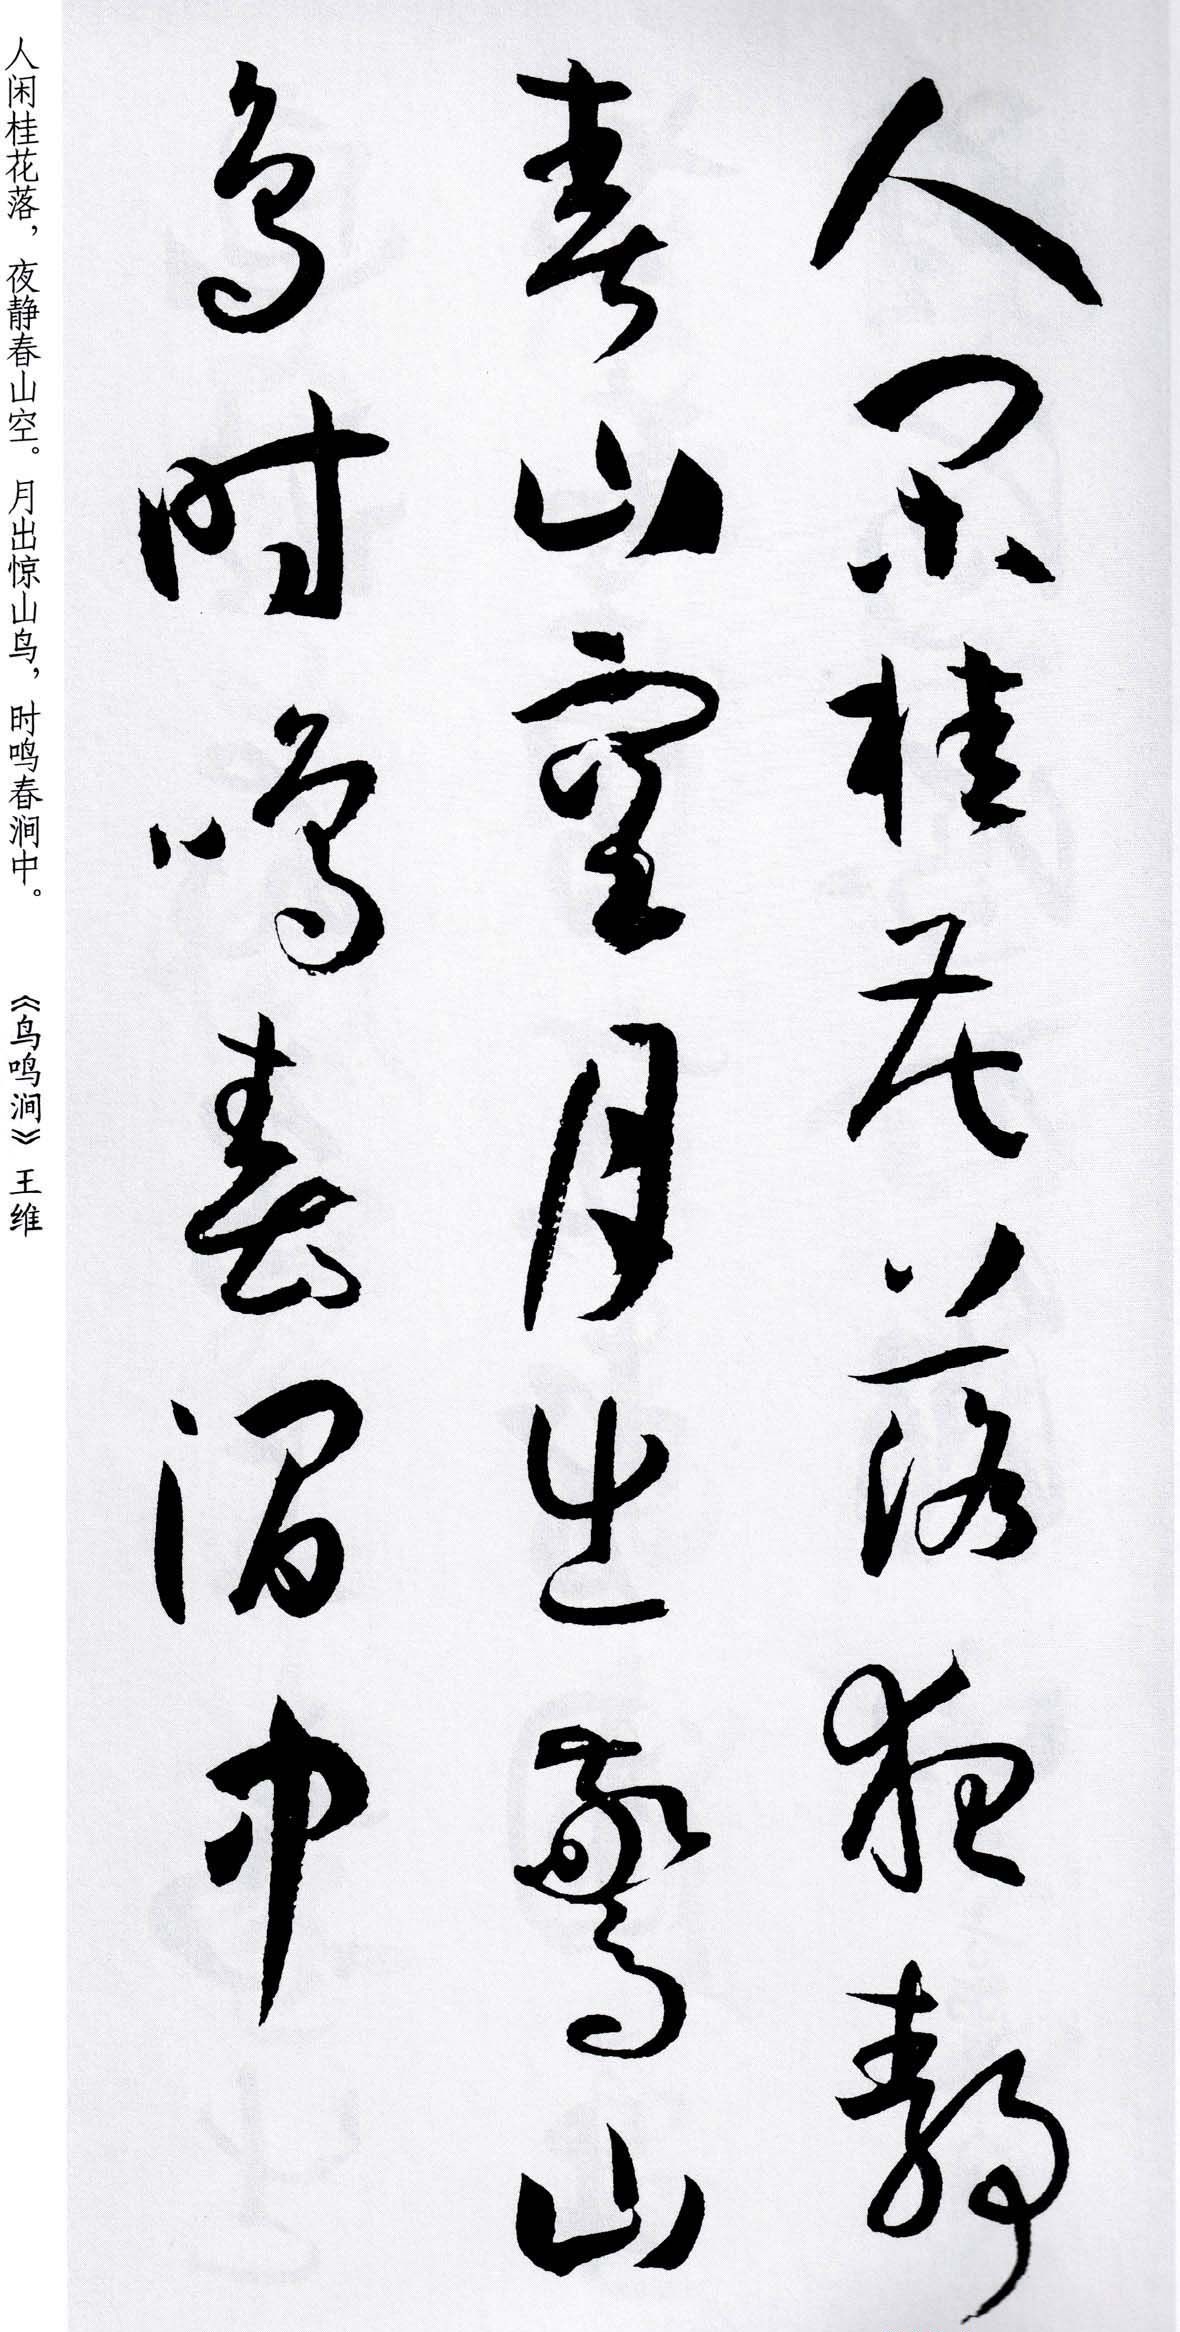 人闲桂花落夜静
春山空月出惊山
鸟时鸣春涧中
人闲桂花落，夜静春山空。月出惊山鸟，时鸣春涧中。 《鸟鸣涧》王维